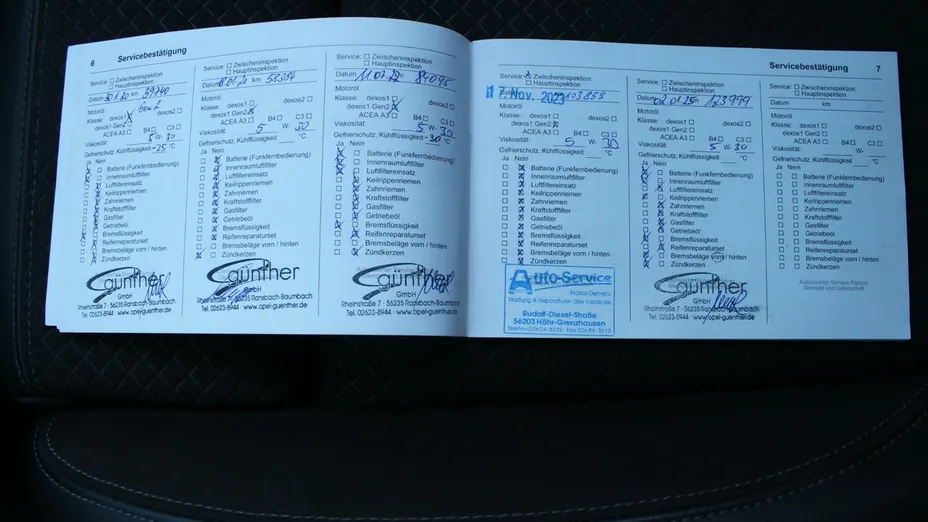 6 Servicebestätigung
Service: Zwischeninspektion
Hauptinspektion
Datum 30.1.20 km 39740
Motoröl Gen 2
Klasse: dexos1 dexos2
dexos1 Gen2
ACEA A3 B4 C3
Viskosität: 5 W- 30
Gefrierschutz, Kühlflüssigkeit -25 °C
Ja Nein
Batterie (Funkfernbedienung)
Innenraumluftfilter
Luftfiltereinsatz
Keilrippenriemen
Zahnriemen
Kraftstofffilter
Gasfilter
Getriebeöl
Bremsflüssigkeit
Reifenreparaturset
Bremsbeläge vorn / hinten
Zündkerzen
günther
GmbH
Rheinstraße 7 · 56235 Ransbach-Baumbach
Tel. 02623-8944 · www.opel-guenther.de
Service: Zwischeninspektion
Hauptinspektion
Datum km 58384
Motoröl
Klasse: dexos1 dexos2
dexos1 Gen2
ACEA A3 B4 C3
Viskosität: 5 W- 30
Gefrierschutz, Kühlflüssigkeit °C
Ja Nein
Batterie (Funkfernbedienung)
Innenraumluftfilter
Luftfiltereinsatz
Keilrippenriemen
Zahnriemen
Kraftstofffilter
Gasfilter
Getriebeöl
Bremsflüssigkeit
Reifenreparaturset
Bremsbeläge vorn / hinten
Zündkerzen
günther
GmbH
Rheinstraße 7 · 56235 Ransbach-Baumbach
Tel. 02623-8944 · www.opel-guenther.de
Service: Zwischeninspektion
Hauptinspektion
Datum 11.07.22 km 84095
Motoröl
Klasse: dexos1 dexos2
dexos1 Gen2
ACEA A3 B4 C3
Viskosität: 5 W- 30
Gefrierschutz, Kühlflüssigkeit -30 °C
Ja Nein
Batterie (Funkfernbedienung)
Innenraumluftfilter
Luftfiltereinsatz
Keilrippenriemen
Zahnriemen
Kraftstofffilter
Gasfilter
Getriebeöl
Bremsflüssigkeit
Reifenreparaturset
Bremsbeläge vorn / hinten
Zündkerzen
günther
GmbH
Rheinstraße 7 · 56235 Ransbach-Baumbach
Tel. 02623-8944 · www.opel-guenther.de
Servicebestätigung 7
Service: Zwischeninspektion
Hauptinspektion
17 Nov. 2023 103853
Motoröl
Klasse: dexos1 dexos2
dexos1 Gen2
ACEA A3 B4 C3
Viskosität: 5 W- 30
Gefrierschutz, Kühlflüssigkeit °C
Ja Nein
Batterie (Funkfernbedienung)
Innenraumluftfilter
Luftfiltereinsatz
Keilrippenriemen
Zahnriemen
Kraftstofffilter
Gasfilter
Getriebeöl
Bremsflüssigkeit
Reifenreparaturset
Bremsbeläge vorn / hinten
Zündkerzen
Auto-Service
Wartung & Reparaturen aller Fabrikate
Rudolf-Diesel-Straße
56203 Höhr-Grenzhausen
Service: Zwischeninspektion
Hauptinspektion
Datum 02.01.25 123999
Motoröl
Klasse: dexos1 dexos2
dexos1 Gen2
ACEA A3 B4 C3
Viskosität: 5 W- 30
Gefrierschutz, Kühlflüssigkeit °C
Ja Nein
Batterie (Funkfernbedienung)
Innenraumluftfilter
Luftfiltereinsatz
Keilrippenriemen
Zahnriemen
Kraftstofffilter
Gasfilter
Getriebeöl
Bremsflüssigkeit
Reifenreparaturset
Bremsbeläge vorn / hinten
Zündkerzen
günther
GmbH
Rheinstraße 7 · 56235 Ransbach-Baumbach
Tel. 02623-8944 · www.opel-guenther.de
Service: Zwischeninspektion
Hauptinspektion
Datum km
Motoröl
Klasse: dexos1 dexos2
dexos1 Gen2
ACEA A3 B4 C3
Viskosität: W-
Gefrierschutz, Kühlflüssigkeit °C
Ja Nein
Batterie (Funkfernbedienung)
Innenraumluftfilter
Luftfiltereinsatz
Keilrippenriemen
Zahnriemen
Kraftstofffilter
Gasfilter
Getriebeöl
Bremsflüssigkeit
Reifenreparaturset
Bremsbeläge vorn / hinten
Zündkerzen
Autorisierter Service Partner
Stempel und Unterschrift